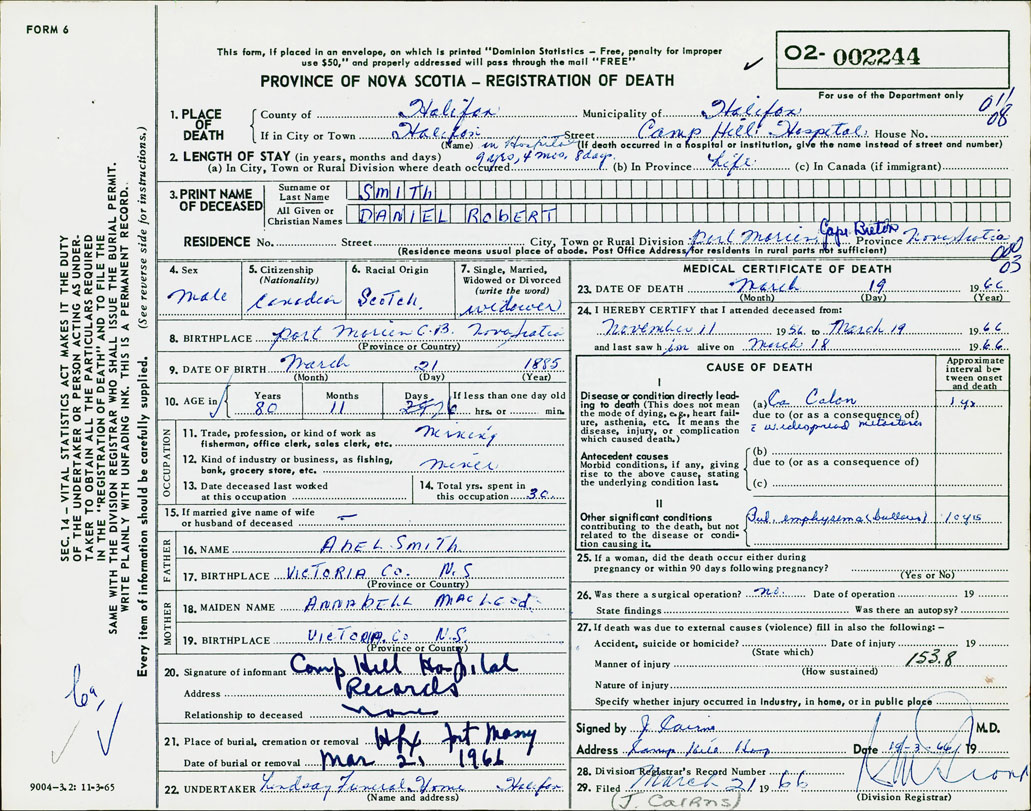 FORM 6
This form, if placed in an envelope, on which is printed "Dominion Statistics – Free, penalty for improper
use $50," and properly addressed will pass through the mail "FREE"
PROVINCE OF NOVA SCOTIA – REGISTRATION OF DEATH
✓
02- 002244
For use of the Department only
011
08
1. PLACE OF DEATH
County of Halifax Municipality of Halifax
If in City or Town Halifax Street Camp Hill Hospital House No.
(Name) in Hospital (If death occurred in a hospital or institution, give the name instead of street and number)
2. LENGTH OF STAY (in years, months and days) 9 yrs, 4 mos, 8 days.
(a) In City, Town or Rural Division where death occurred (b) In Province Life (c) In Canada (if immigrant)
3. PRINT NAME OF DECEASED
Surname or Last Name SMITH
All Given or Christian Names DANIEL ROBERT
RESIDENCE No. Street City, Town or Rural Division Port Morien Cape Breton Province Nova Scotia
(Residence means usual place of abode. Post Office Address for residents in rural parts not sufficient)
03
4. Sex Male
5. Citizenship (Nationality) Canadian
6. Racial Origin Scotch.
7. Single, Married, Widowed or Divorced (write the word) widower
8. BIRTHPLACE Port Morien C.B. Nova Scotia
(Province or Country)
9. DATE OF BIRTH March 21 1885
(Month) (Day) (Year)
10. AGE in Years 80 Months 11 Days If less than one day old hrs. or min.
OCCUPATION
11. Trade, profession, or kind of work as fisherman, office clerk, sales clerk, etc. Mining
12. Kind of industry or business, as fishing, bank, grocery store, etc. Miner
13. Date deceased last worked at this occupation
14. Total yrs. spent in this occupation 30
15. If married give name of wife or husband of deceased —
FATHER
16. NAME ABEL SMITH
17. BIRTHPLACE VICTORIA Co. N.S
(Province or Country)
MOTHER
18. MAIDEN NAME ANNABELL MACLEOD
19. BIRTHPLACE VICTORIA Co N.S
(Province or Country)
20. Signature of informant Camp Hill Hospital
Address Records
Relationship to deceased None
21. Place of burial, cremation or removal Hfx Fort Massy
Date of burial or removal Mar 21, 1966
22. UNDERTAKER Lindsay Funeral Home Halifax
(Name and address)
MEDICAL CERTIFICATE OF DEATH
23. DATE OF DEATH March 19 1966
(Month) (Day) (Year)
24. I HEREBY CERTIFY that I attended deceased from:
November 11 1956 to March 19 1966
and last saw him alive on March 18 1966
CAUSE OF DEATH
Approximate interval between onset and death
I
Disease or condition directly leading to death (This does not mean the mode of dying, e.g., heart failure, asthenia, etc. It means the disease, injury, or complication which caused death.)
(a) Ca Colon 1 yr
due to (or as a consequence of)
c widespread metastases
Antecedent causes
Morbid conditions, if any, giving rise to the above cause, stating the underlying condition last.
(b)
due to (or as a consequence of)
(c)
II
Other significant conditions contributing to the death, but not related to the disease or condition causing it.
Pul. emphysema (bullous) 10 yrs
25. If a woman, did the death occur either during pregnancy or within 90 days following pregnancy?
(Yes or No)
26. Was there a surgical operation? no. Date of operation 19
State findings Was there an autopsy?
27. If death was due to external causes (violence) fill in also the following:–
Accident, suicide or homicide? Date of injury 19
(State which)
Manner of injury 153.8
(How sustained)
Nature of injury
Specify whether injury occurred in industry, in home, or in public place
Signed by J. Cairns M.D.
Address Camp Hill Hosp Date 19-3-66 19
28. Division Registrar's Record Number
29. Filed March 21 1966
(Division Registrar)
(J. CAIRNS)
SEC. 14 – VITAL STATISTICS ACT MAKES IT THE DUTY
OF THE UNDERTAKER OR PERSON ACTING AS UNDER-
TAKER TO OBTAIN ALL THE PARTICULARS REQUIRED
IN THE "REGISTRATION OF DEATH" AND TO FILE THE
SAME WITH THE DIVISION REGISTRAR WHO SHALL ISSUE THE BURIAL PERMIT.
WRITE PLAINLY WITH UNFADING INK. THIS IS A PERMANENT RECORD.
Every item of information should be carefully supplied. (See reverse side for instructions.)
9004-3.2: 11-3-65